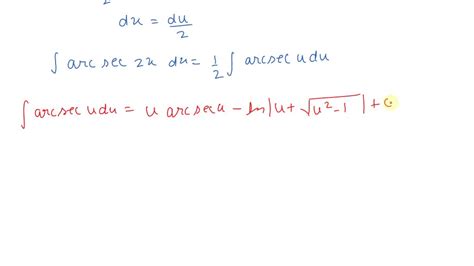 2
dx = du/2
∫ arc sec 2x dx = 1/2 ∫ arcsec u du
∫ arc sec u du = u arcsec u - ln |u + √(u² - 1)| + C